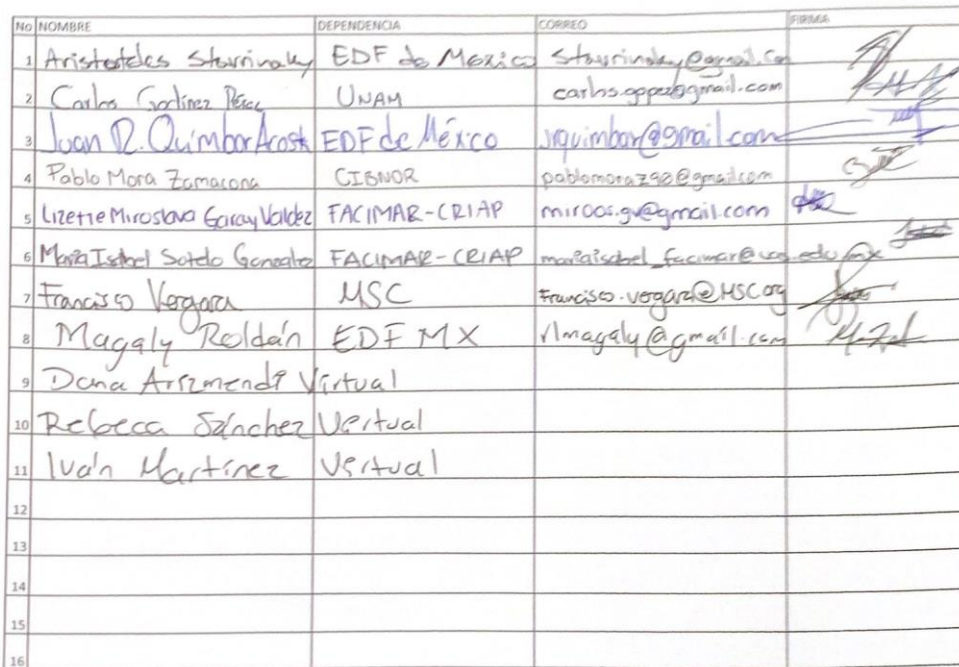 No NOMBRE DEPENDENCIA CORREO FIRMA
1 Aristoteles Stavrinaky EDF de México
2 Carlos Godinez Pérez UNAM
3 Juan D. Quimbar Acosta EDF de México jrquimbar@gmail.com
4 Pablo Mora Zamacona CIBNOR pablomoraz90@gmail.com
5 Lizette Miroslava Garay Valdez FACIMAR-CRIAP miroos.gv@gmail.com
6 Maria Isabel Sotelo Gonzalez FACIMAR-CRIAP mariaisabel_facimar@uas.edu.mx
7 Francisco Vergara MSC francisco.vergara@MSC.org
8 Magaly Roldán EDF MX rlmagaly@gmail.com
9 Dana Arizmendi Virtual
10 Rebeca Sánchez Virtual
11 Iván Martínez Virtual
12
13
14
15
16